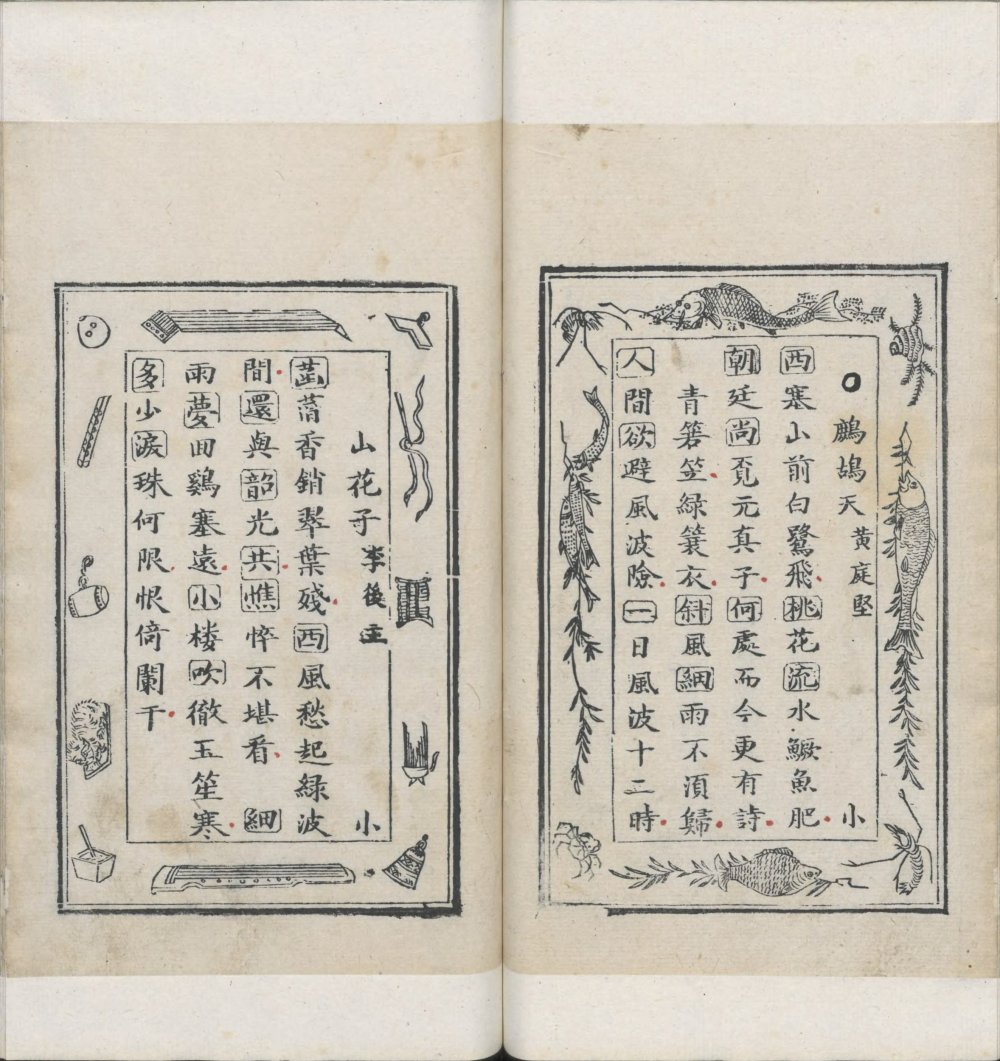 ○鷓鴣天 黃庭堅 小
西塞山前白鷺飛桃花流水鱖魚肥
朝廷尚覔元真子何處而今更有詩
青箬笠綠簑衣斜風細雨不湏歸
人間欲避風波險一日風波十二時
山花子 李後主 小
菡萏香銷翠葉殘西風愁起綠波
間還與韶光共憔悴不堪看 細
雨夢囬鷄塞遠小楼吹徹玉笙寒
多少淚珠何限恨倚闌干